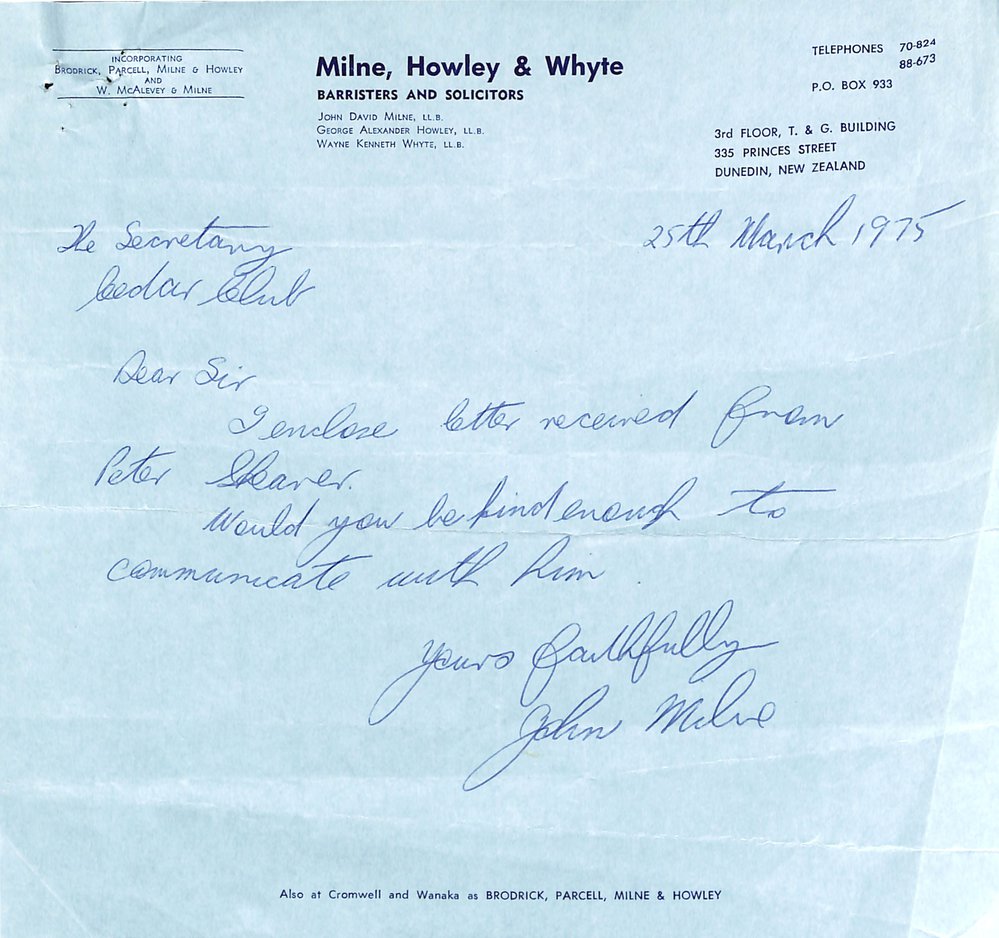 INCORPORATING
BRODRICK, PARCELL, MILNE & HOWLEY
AND
W. MCALEVEY & MILNE
Milne, Howley & Whyte
BARRISTERS AND SOLICITORS
JOHN DAVID MILNE, LL.B.
GEORGE ALEXANDER HOWLEY, LL.B.
WAYNE KENNETH WHYTE, LL.B.
TELEPHONES 70-824
88-673
P.O. BOX 933
3rd FLOOR, T. & G. BUILDING
335 PRINCES STREET
DUNEDIN, NEW ZEALAND
25th March 1975
The Secretary
Cedar Club
Dear Sir
I enclose letter received from
Peter Shearer.
Would you be kind enough to
communicate with him.
Yours faithfully
John Milne
Also at Cromwell and Wanaka as BRODRICK, PARCELL, MILNE & HOWLEY